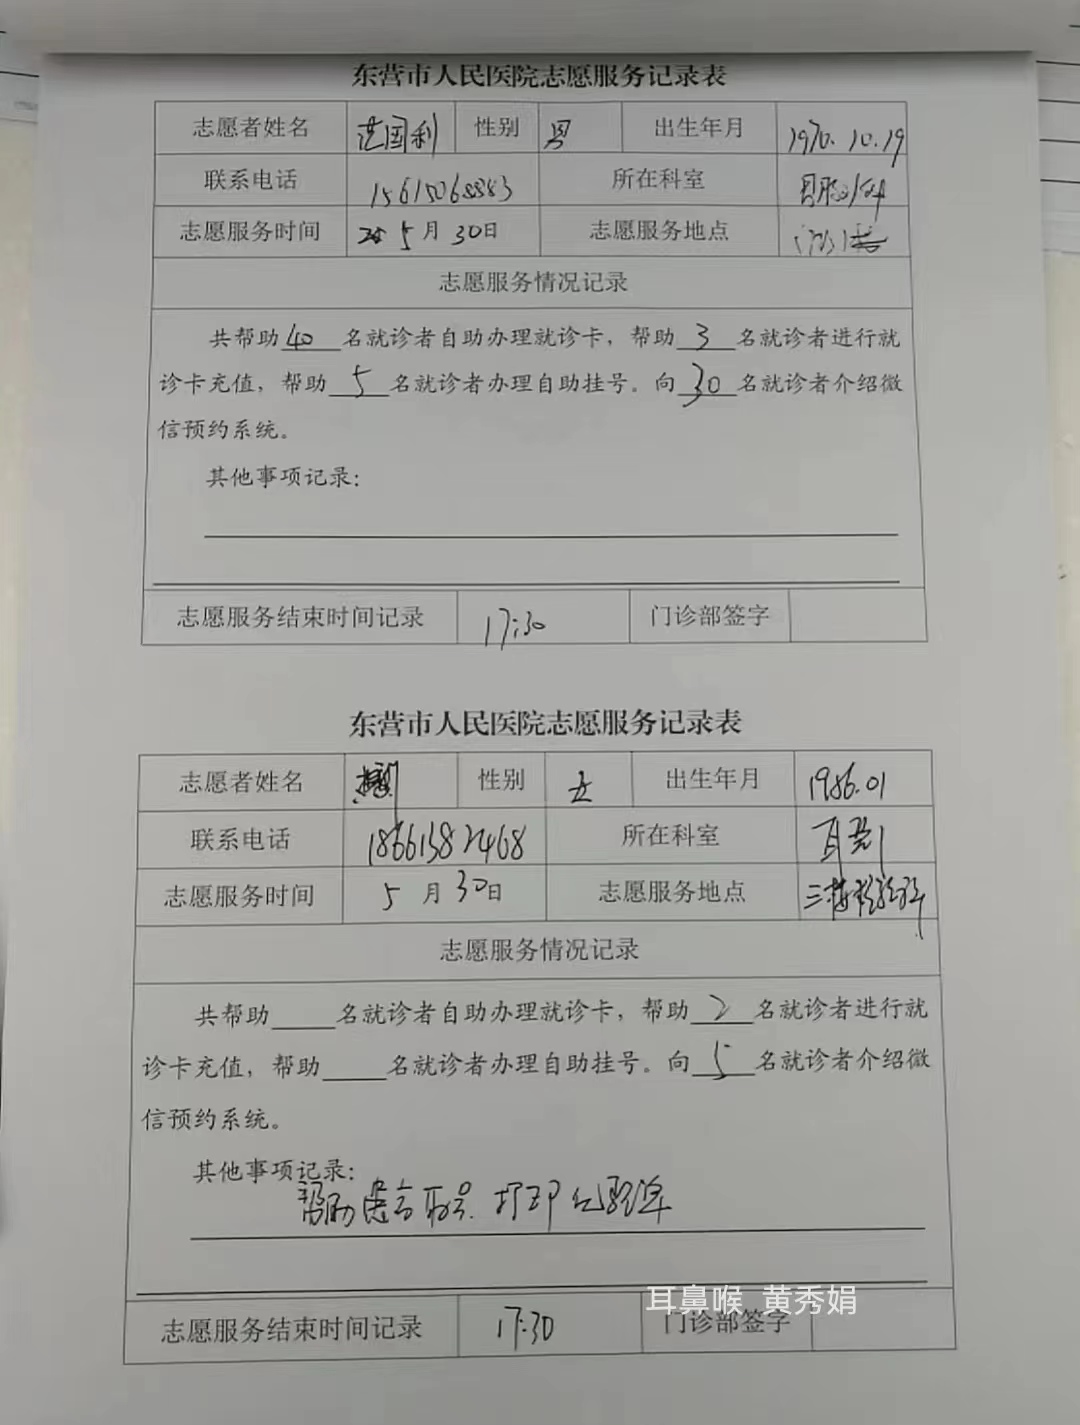 东营市人民医院志愿服务记录表
志愿者姓名 范国利 性别 男 出生年月 1970.10.19
联系电话 所在科室
志愿服务时间 5月30日 志愿服务地点
志愿服务情况记录
共帮助40名就诊者自助办理就诊卡，帮助3名就诊者进行就
诊卡充值，帮助5名就诊者办理自助挂号。向30名就诊者介绍微
信预约系统。
其他事项记录：
志愿服务结束时间记录 17:30 门诊部签字
东营市人民医院志愿服务记录表
志愿者姓名 性别 女 出生年月 1986.01
联系电话 18661382468 所在科室 耳鼻
志愿服务时间 5月30日 志愿服务地点 三楼
志愿服务情况记录
共帮助 名就诊者自助办理就诊卡，帮助2名就诊者进行就
诊卡充值，帮助 名就诊者办理自助挂号。向5名就诊者介绍微
信预约系统。
其他事项记录：
帮助患者取号、打印化验单
耳鼻喉 黄秀娟
志愿服务结束时间记录 17:30 门诊部签字